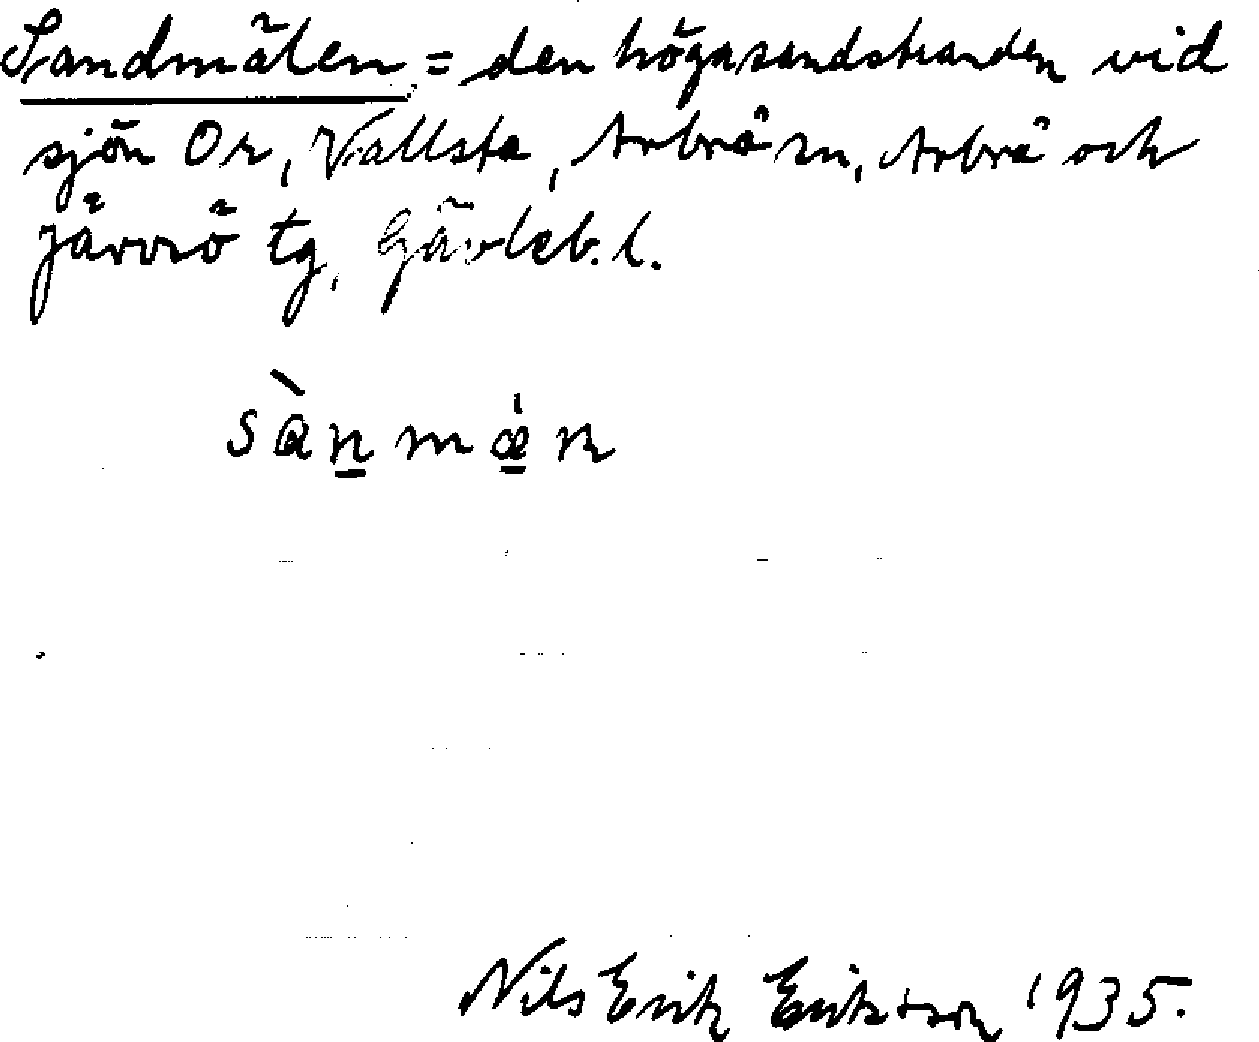 Sandmälen = den höga sandstranden vid
sjön Or, Vallsta, Arbrå sn, Arbrå och
Järvsö tg, Gävleb. l.
sànmæ̠n
Nils Erik Eriksson 1935.